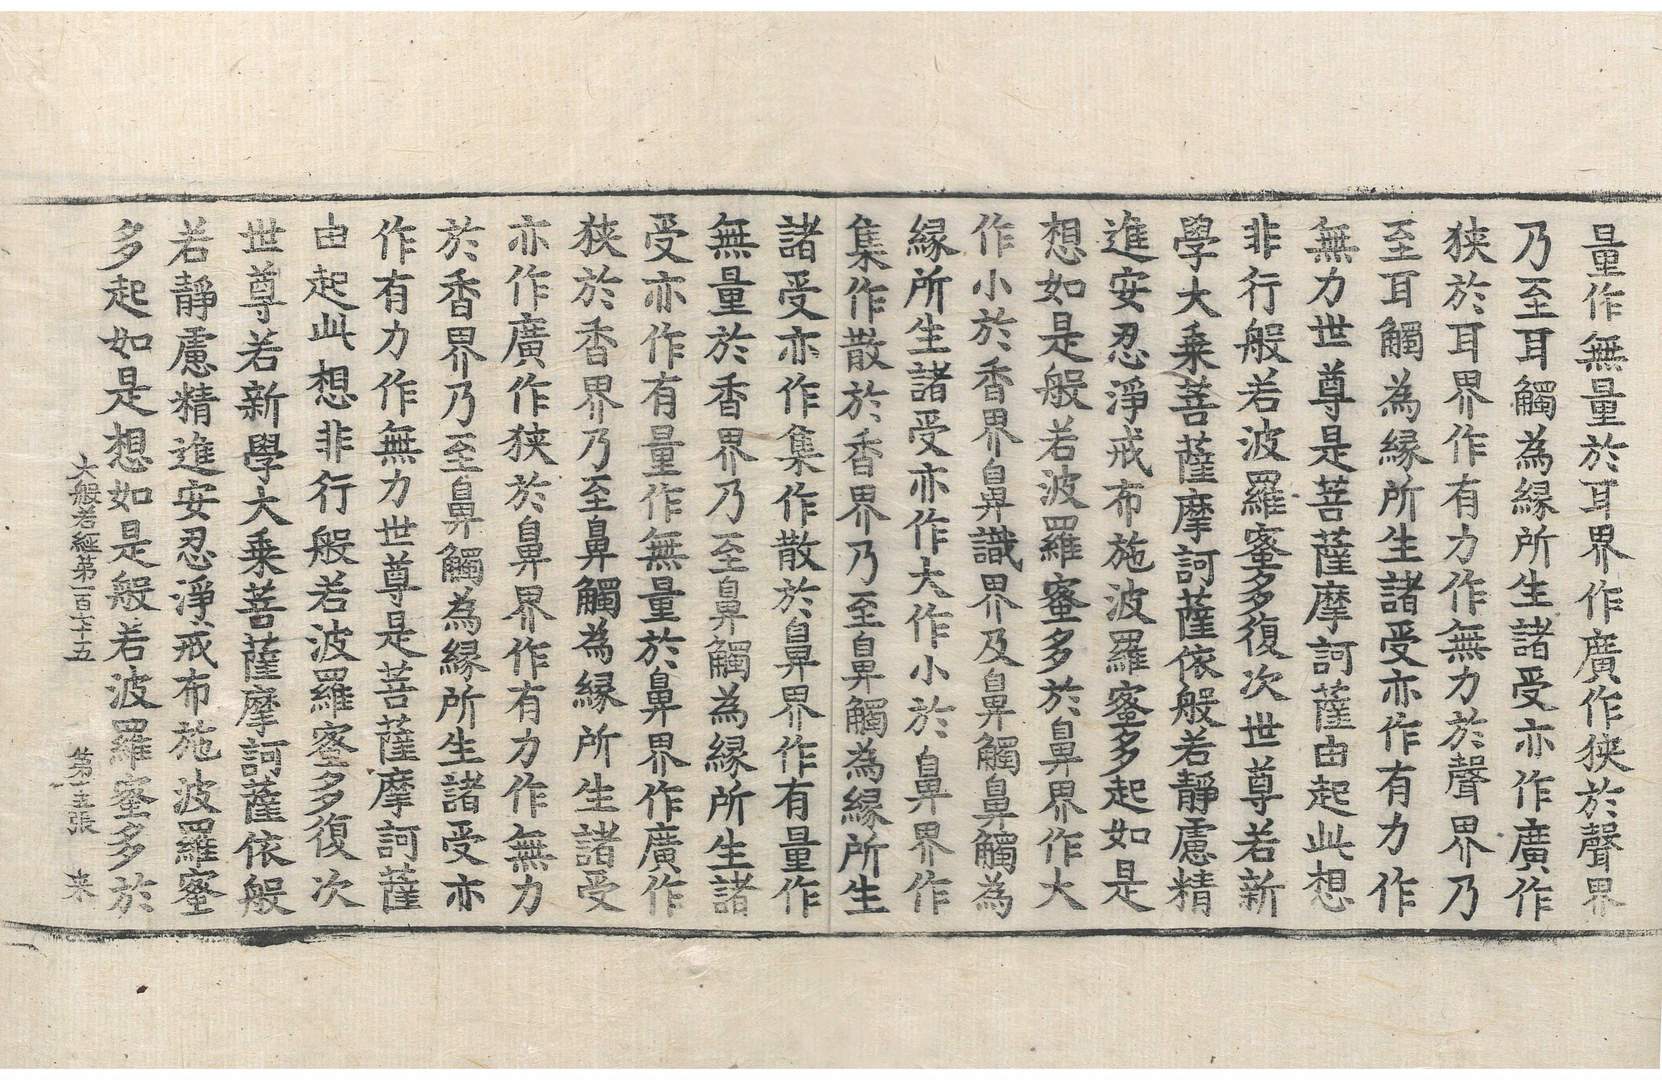 量作無量於耳界作廣作狹於聲界
乃至耳觸為緣所生諸受亦作廣作
狹於耳界作有力作無力於聲界乃
至耳觸為緣所生諸受亦作有力作
無力世尊是菩薩摩訶薩由起此想
非行般若波羅蜜多復次世尊若新
學大乘菩薩摩訶薩依般若靜慮精
進安忍淨戒布施波羅蜜多起如是
想如是般若波羅蜜多於鼻界作大
作小於香界鼻識界及鼻觸鼻觸為
緣所生諸受亦作大作小於鼻界作
集作散於香界乃至鼻觸為緣所生
諸受亦作集作散於鼻界作有量作
無量於香界乃至鼻觸為緣所生諸
受亦作有量作無量於鼻界作廣作
狹於香界乃至鼻觸為緣所生諸受
亦作廣作狹於鼻界作有力作無力
於香界乃至鼻觸為緣所生諸受亦
作有力作無力世尊是菩薩摩訶薩
由起此想非行般若波羅蜜多復次
世尊若新學大乘菩薩摩訶薩依般
若靜慮精進安忍淨戒布施波羅蜜
多起如是想如是般若波羅蜜多於
大般若經第一百六十五 第十五張 来